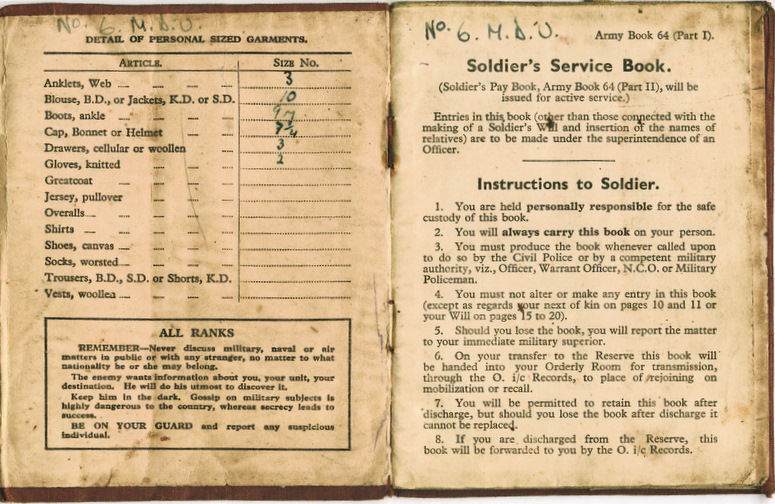 No. 6. M.D.U.
DETAIL OF PERSONAL SIZED GARMENTS.
ARTICLE. SIZE NO.
Anklets, Web 3
Blouse, B.D., or Jackets, K.D. or S.D. 10
Boots, ankle
Cap, Bonnet or Helmet
Drawers, cellular or woollen 3
Gloves, knitted 2
Greatcoat
Jersey, pullover
Overalls
Shirts
Shoes, canvas
Socks, worsted
Trousers, B.D., S.D. or Shorts, K.D.
Vests, woollen
ALL RANKS
REMEMBER—Never discuss military, naval or air
matters in public or with any stranger, no matter to what
nationality he or she may belong.
The enemy wants information about you, your unit, your
destination. He will do his utmost to discover it.
Keep him in the dark. Gossip on military subjects is
highly dangerous to the country, whereas secrecy leads to
success.
BE ON YOUR GUARD and report any suspicious
individual.
No. 6. M.D.U.
Army Book 64 (Part I).
Soldier's Service Book.
(Soldier's Pay Book, Army Book 64 (Part II), will be
issued for active service.)
Entries in this book (other than those connected with the
making of a Soldier's Will and insertion of the names of
relatives) are to be made under the superintendence of an
Officer.
Instructions to Soldier.
1. You are held personally responsible for the safe
custody of this book.
2. You will always carry this book on your person.
3. You must produce the book whenever called upon
to do so by the Civil Police or by a competent military
authority, viz., Officer, Warrant Officer, N.C.O. or Military
Policeman.
4. You must not alter or make any entry in this book
(except as regards your next of kin on pages 10 and 11 or
your Will on pages 15 to 20).
5. Should you lose the book, you will report the matter
to your immediate military superior.
6. On your transfer to the Reserve this book will
be handed into your Orderly Room for transmission,
through the O. i/c Records, to place of rejoining on
mobilization or recall.
7. You will be permitted to retain this book after
discharge, but should you lose the book after discharge it
cannot be replaced.
8. If you are discharged from the Reserve, this
book will be forwarded to you by the O. i/c Records.